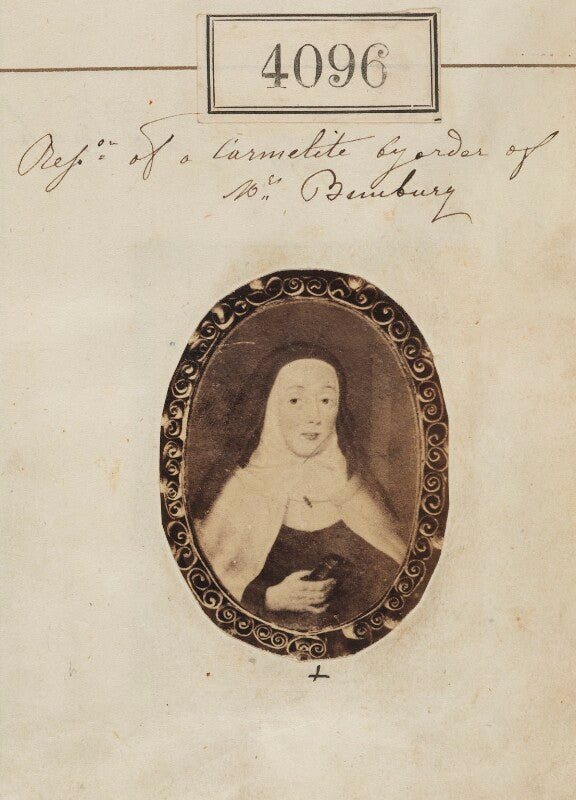 4096
Rep.on of a Carmelite by order of
Mrs Bunbury